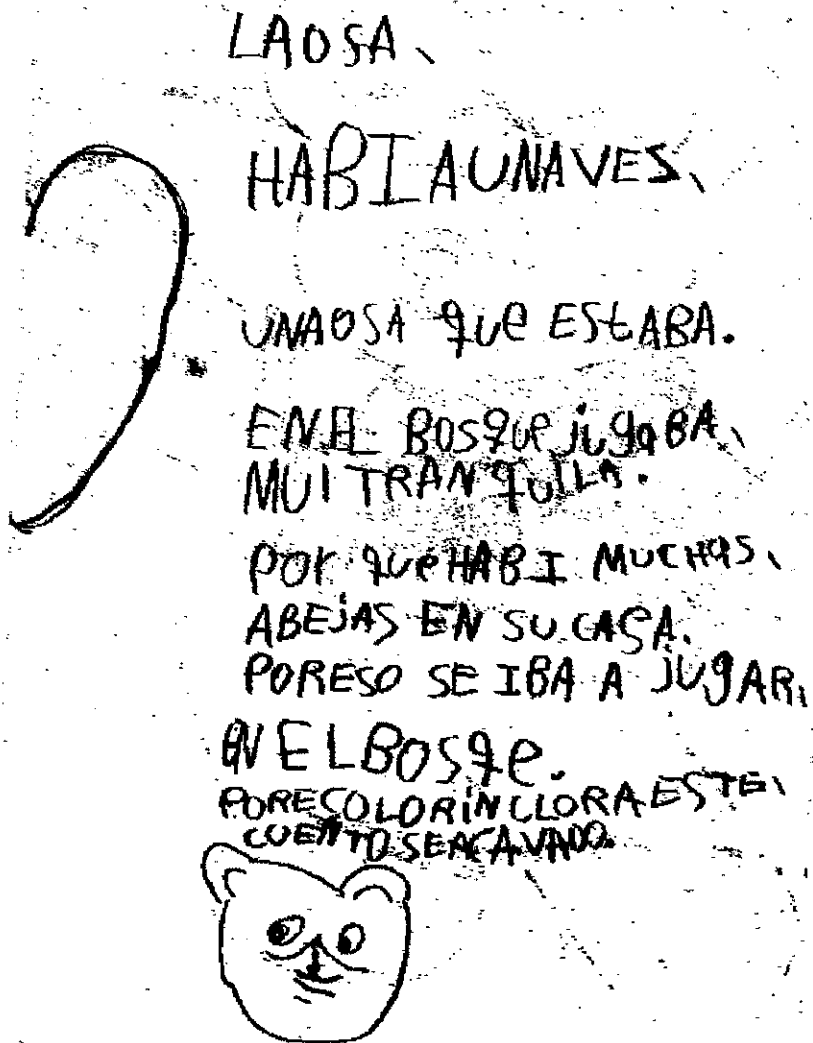 LAOSA、
HABIAUNAVES、
UNAOSA que EStABA.
ENEL BOSque jugaBA、
MUI TRANquiLA.
por queHABI MUCHAS、
ABEjAS EN SU CASA.
PORESO SE IBA A jUgAR,
EN ELBOSqe.
PORECOLORiNCLORAESTE、
CUENTOSEACAVADO.